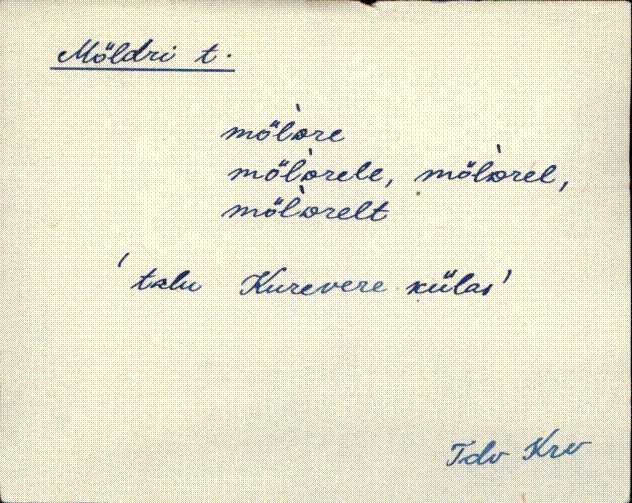 Möldri t.
möl̀dre
möl̀drele, möl̀drel,
möl̀drelt
'talu Kurevere külas'
Tdv Krv